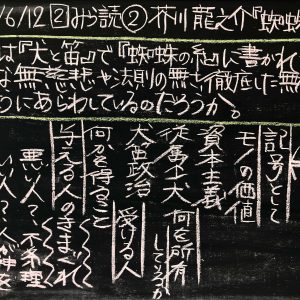 /6/12 2 みら読② 芥川龍之介『蜘蛛
は『犬と笛』で『蜘蛛の糸』に書かれ
な無慈悲や法則の無い徹底した無
うにあらわしているのだろうか。
記号として
モノの価値
資本主義
従属=犬 何を所有
しているか
犬笛政治 受ける人
何かを得ること
与える人のきまぐれ
悪人?不条理
いい人?人が神